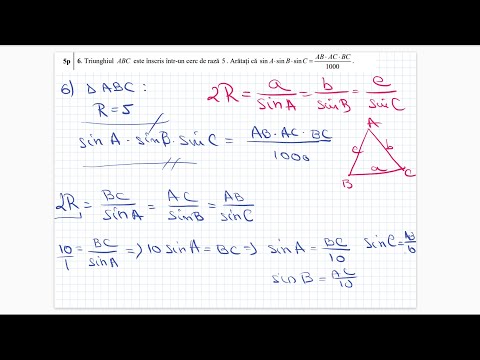 5p 6. Triunghiul ABC este înscris într-un cerc de rază 5. Arătați că sin A·sin B·sin C = AB·AC·BC/1000.
6) Δ ABC :
R = 5
2R = a/sin A = b/sin B = c/sin C
sin A · sin B · sin C = AB · AC · BC/1000
A
c b
B a C
2R = BC/sin A = AC/sin B = AB/sin C
10/1 = BC/sin A => 10 sin A = BC => sin A = BC/10 sin C = AB/10
sin B = AC/10